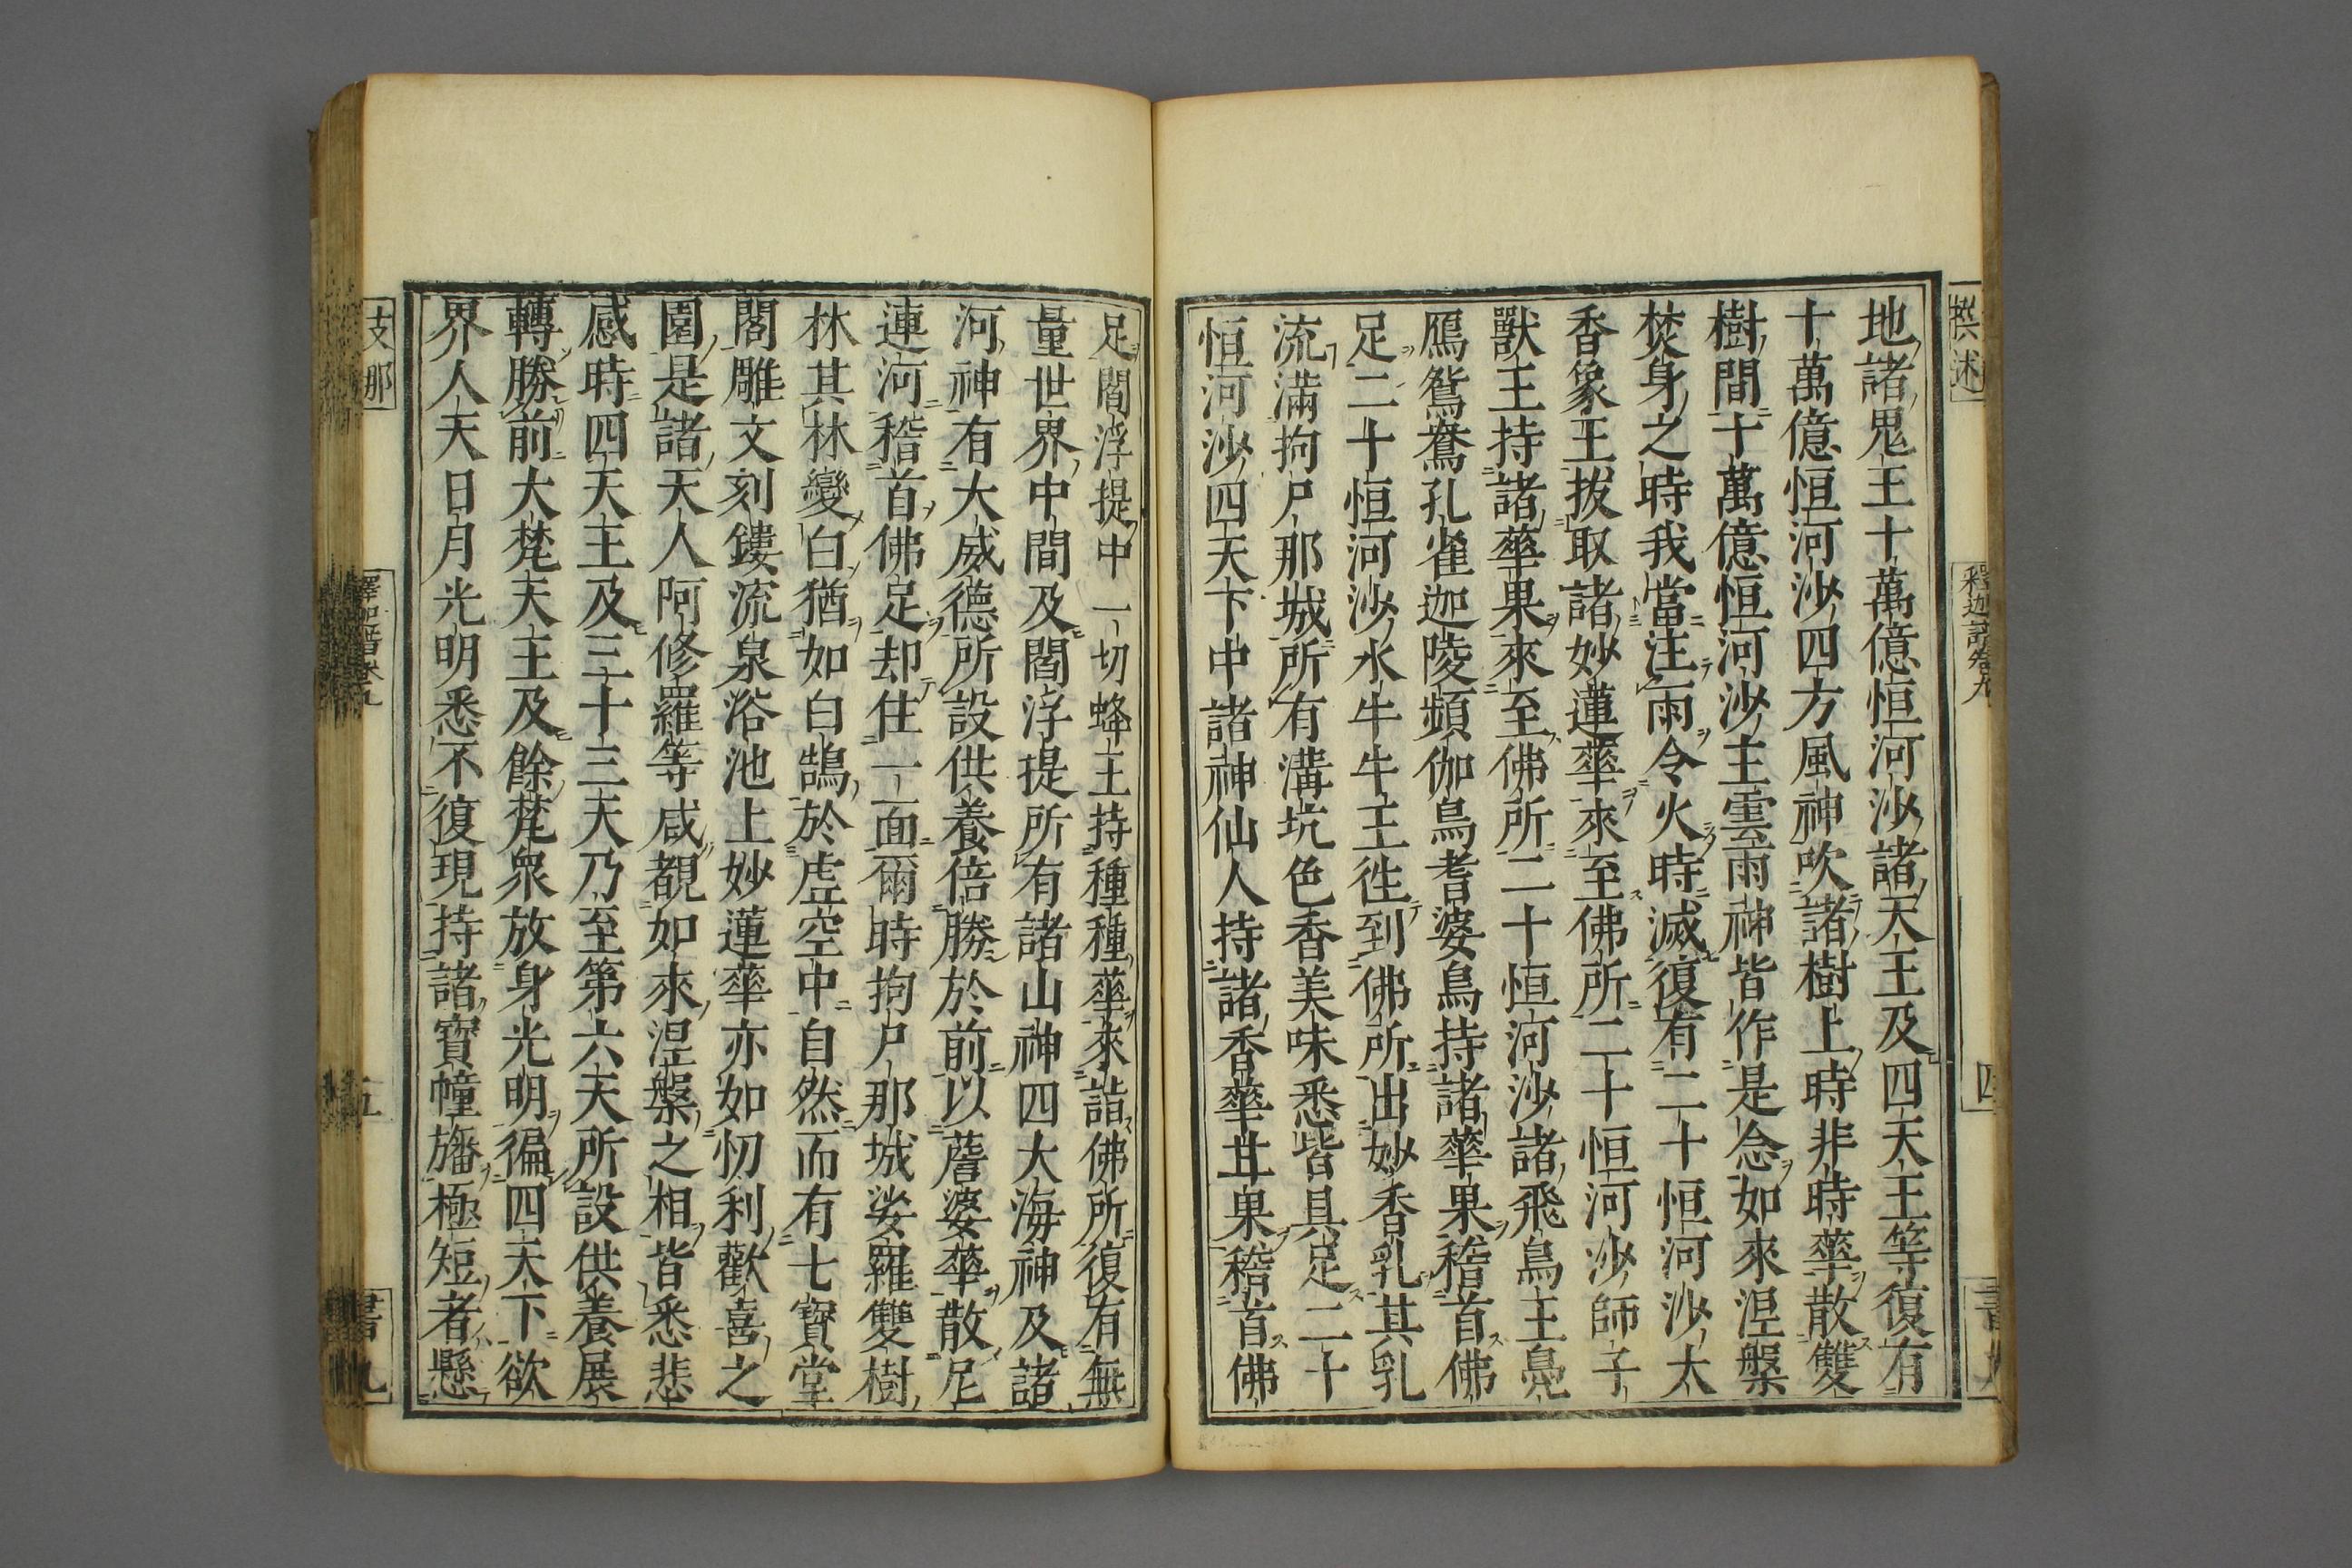 撰述
釋迦譜卷九
四
地諸鬼王十萬億恒河沙諸天王及四天王等復有
十萬億恒河沙四方風神吹諸樹上時非時華散雙
樹間十萬億恒河沙主雲雨神皆作是念如來涅槃
焚身之時我當注雨令火時滅復有二十恒河沙大
香象王拔取諸妙蓮華來至佛所二十恒河沙師子
獸王持諸華果來至佛所二十恒河沙諸飛鳥王鳧
鴈鴛鴦孔雀迦陵頻伽鳥耆婆鳥持諸華果稽首佛
足二十恒河沙水牛牛王徃到佛所出妙香乳其乳
流滿拘尸那城所有溝坑色香美味悉皆具足二十
恒河沙四天下中諸神仙人持諸香華甘果稽首佛
足閻浮提中一切蜂王持種種華來詣佛所復有無
量世界中間及閻浮提所有諸山神四大海神及諸
河神有大威德所設供養倍勝於前以薝婆華散尼
連河稽首佛足却住一面爾時拘尸那城娑羅雙樹
林其林變白猶如白鵠於虛空中自然而有七寶堂
閣雕文刻鏤流泉浴池上妙蓮華亦如忉利歡喜之
園是諸天人阿修羅等咸覩如來涅槃之相皆悉悲
感時四天王及三十三天乃至第六天所設供養展
轉勝前大梵天王及餘梵衆放身光明徧四天下欲
界人天日月光明悉不復現持諸寶幢旛極短者懸
支那
釋迦譜卷九
五
書九